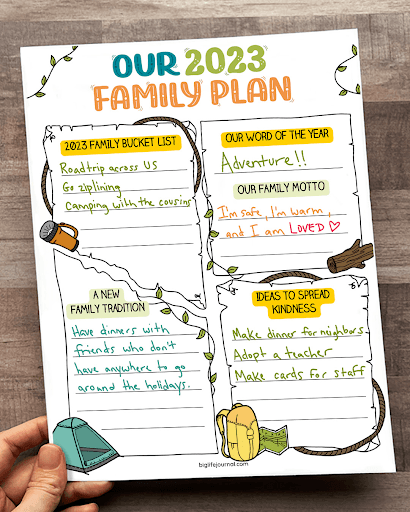 OUR 2023
FAMILY PLAN
2023 FAMILY BUCKET LIST
Roadtrip across US
Go ziplining
Camping with the cousins
OUR WORD OF THE YEAR
Adventure!!
OUR FAMILY MOTTO
I'm safe, I'm warm,
and I am LOVED ♡
A NEW
FAMILY TRADITION
Have dinners with
friends who don't
have anywhere to go
around the holidays.
IDEAS TO SPREAD
KINDNESS
Make dinner for neighbors
Adopt a teacher
Make cards for staff
biglifejournal.com